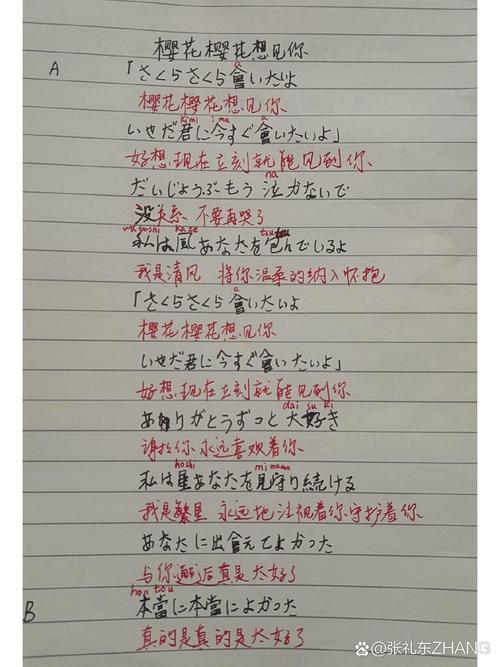 樱花樱花想见你
A
a
「さくらさくら會いたいよ
樱花樱花想见你
kimi ima a
いやだ君に今すぐ會いたいよ」
好想现在立刻就能见到你
na
だいじょうぶもう泣かないで
没关系 不要再哭了
watashi kaze tsutsu
私は風あなたを包んでいるよ
我是清风 将你温柔的纳入怀抱
a
「さくらさくら會いたいよ
樱花樱花想见你
いやだ君に今すぐ會いたいよ」
好想现在立刻就能见到你
dai su ki
ありがとうずっと大好き
谢谢你永远喜欢着你
hoshi mimamo
私は星あなたを見守り続ける
我是繁星 永远地注视着你守护着你
あなたに出會えてよかった
与你邂逅真是太好了
hontou
B
本當に本當によかった
真的是真的是太好了
@张礼东ZHANG